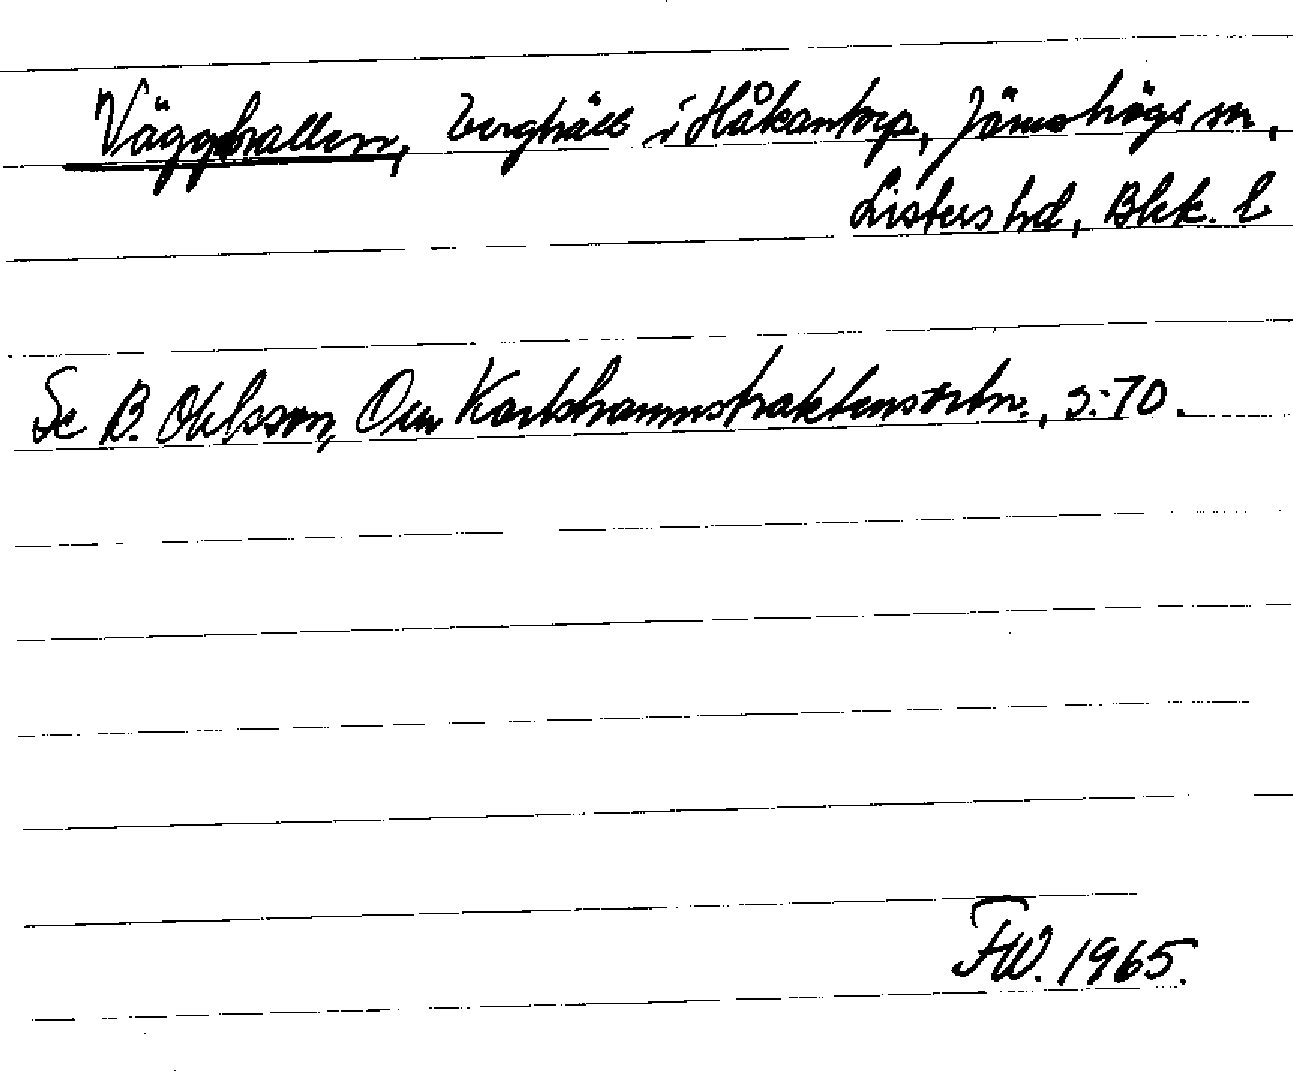 Vägghallen, berghäll i Håkantorp, Jämshögs sn,
Listers hd, Blek. l
Se B. Ohlsson, Om Karlshamnstraktens ortn., s. 70.
FW. 1965.